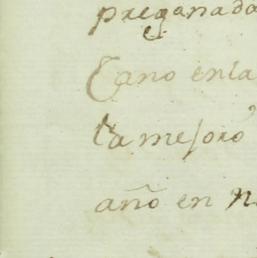 preganada
Cano enla
la mesoro
año en n